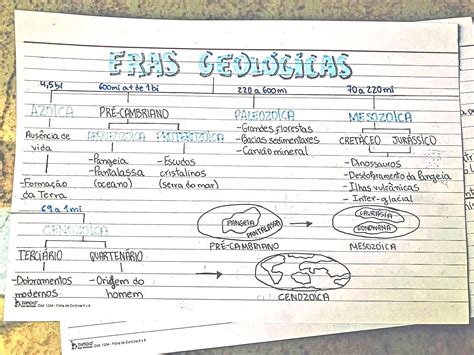 ERAS GEOLÓGICAS
4,5bi 600mi até 1bi 220 a 600mi 70 a 220mi
AZOICA PRÉ-CAMBRIANO PALEOZOICA MESOZOICA
Ausência de vida
- Formação da Terra
ARQUEOZOICA PROTEROZOICA
- Pangeia
- Pantalassa (oceano)
- Escudos cristalinos (serra do mar)
- Grandes florestas
- Bacias sedimentares
- Carvão mineral
CRETÁCEO JURÁSSICO
- Dinossauros
- Desdobramento da Pangeia
- Ilhas vulcânicas
- Inter-glacial
69 a 1mi
CENOZOICA
TERCIÁRIO QUARTENÁRIO
- Dobramentos modernos
- Origem do homem
PANGEIA
PANTALASSA
PRÉ-CAMBRIANO
LAURÁSIA
GONDWANA
MESOZOICA
CENOZOICA